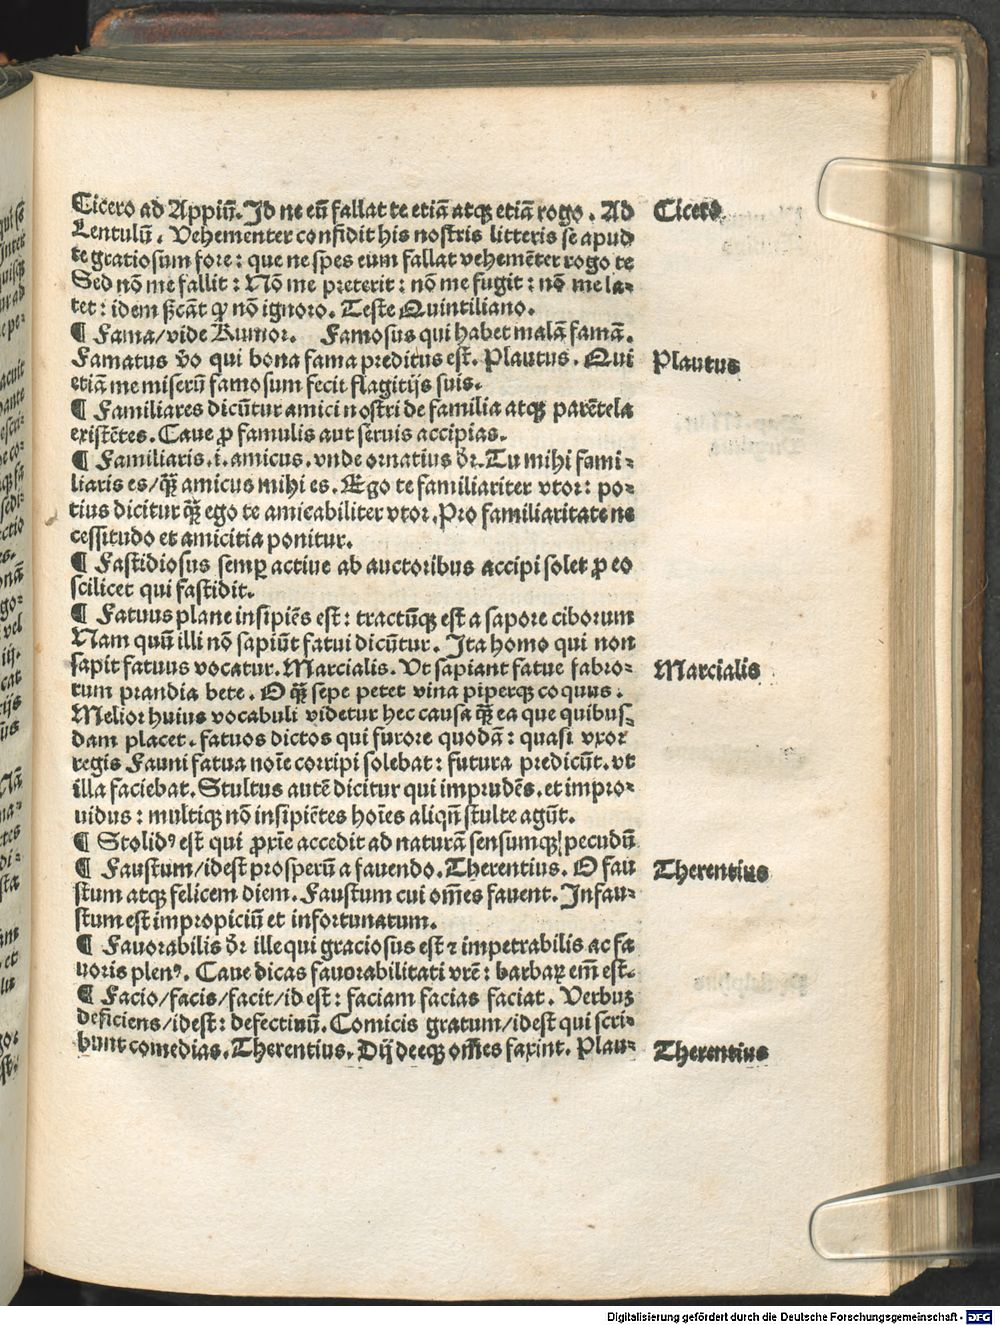 Cicero ad Appiū. Id ne eū fallat te etiā atqꝫ etiā rogo. Ad
Cicero
Lentulū. Vehementer confidit his nostris litteris se apud
te gratiosum fore: que ne spes eum fallat vehemēter rogo te
Sed nō me fallit: Nō me preterit: nō me fugit: nō me la-
tet: idem sc̄āt qđ nō ignoro. Teste Quintiliano.
¶ Fama/vide Rumor. Famosus qui habet malā famā.
Famatus v̄o qui bona fama preditus est. Plautus. Qui
Plautus
etiā me miserū famosum fecit flagitijs suis.
¶ Familiares dicūtur amici nostri de familia atqꝫ parētela
existētes. Caue ꝓ famulis aut seruis accipias.
¶ Familiaris .i. amicus. vnde ornatius dr̄. Tu mihi fami-
liaris es/qꝫ̄ amicus mihi es. Ego te familiariter vtor: po-
tius dicitur qꝫ̄ ego te amicabiliter vtor. Pro familiaritate ne
cessitudo et amicitia ponitur.
¶ Fastidiosus semꝑ actiue ab auctoribus accipi solet ꝓ eo
scilicet qui fastidit.
¶ Fatuus plane insipiēs est: tractūqꝫ est a sapore ciborum
Nam quū illi nō sapiūt fatui dicūtur. Ita homo qui non
sapit fatuus vocatur. Marcialis. Vt sapiant fatue fabro-
Marcialis
rum prandia bete. O qꝫ̄ sepe petet vina piperqꝫ coquus.
Melior huius vocabuli videtur hec causa qꝫ̄ ea que quibus-
dam placet. fatuos dictos qui furore quodā: quasi vxor
regis Fauni fatua noīe corripi solebat: futura predicūt. vt
illa faciebat. Stultus autē dicitur qui imprudēs. et impro-
uidus: multiqꝫ nō insipiētes hoīes aliqn̄ stulte agūt.
¶ Stolidꝰ est qui ꝓxīe accedit ad naturā sensumqꝫ pecudū
¶ Faustum/idest prosperū a fauendo. Therentius. O fau
Therentius
stum atqꝫ felicem diem. Faustum cui om̄es fauent. Infau-
stum est impropiciū et infortunatum.
¶ Fauorabilis dr̄ ille qui graciosus est ⁊ impetrabilis ac fa
uoris plenꝰ. Caue dicas fauorabilitati vr̄e: barbaꝝ em̄ est.
¶ Facio/facis/facit/id est: faciam facias faciat. Verbuꝫ
deficiens/idest: defectiuū. Comicis gratum/idest qui scri-
bunt comedias. Therentius. Dij deeqꝫ om̄es faxint. Plau-
Therentius
Digitalisierung gefördert durch die Deutsche Forschungsgemeinschaft - DFG